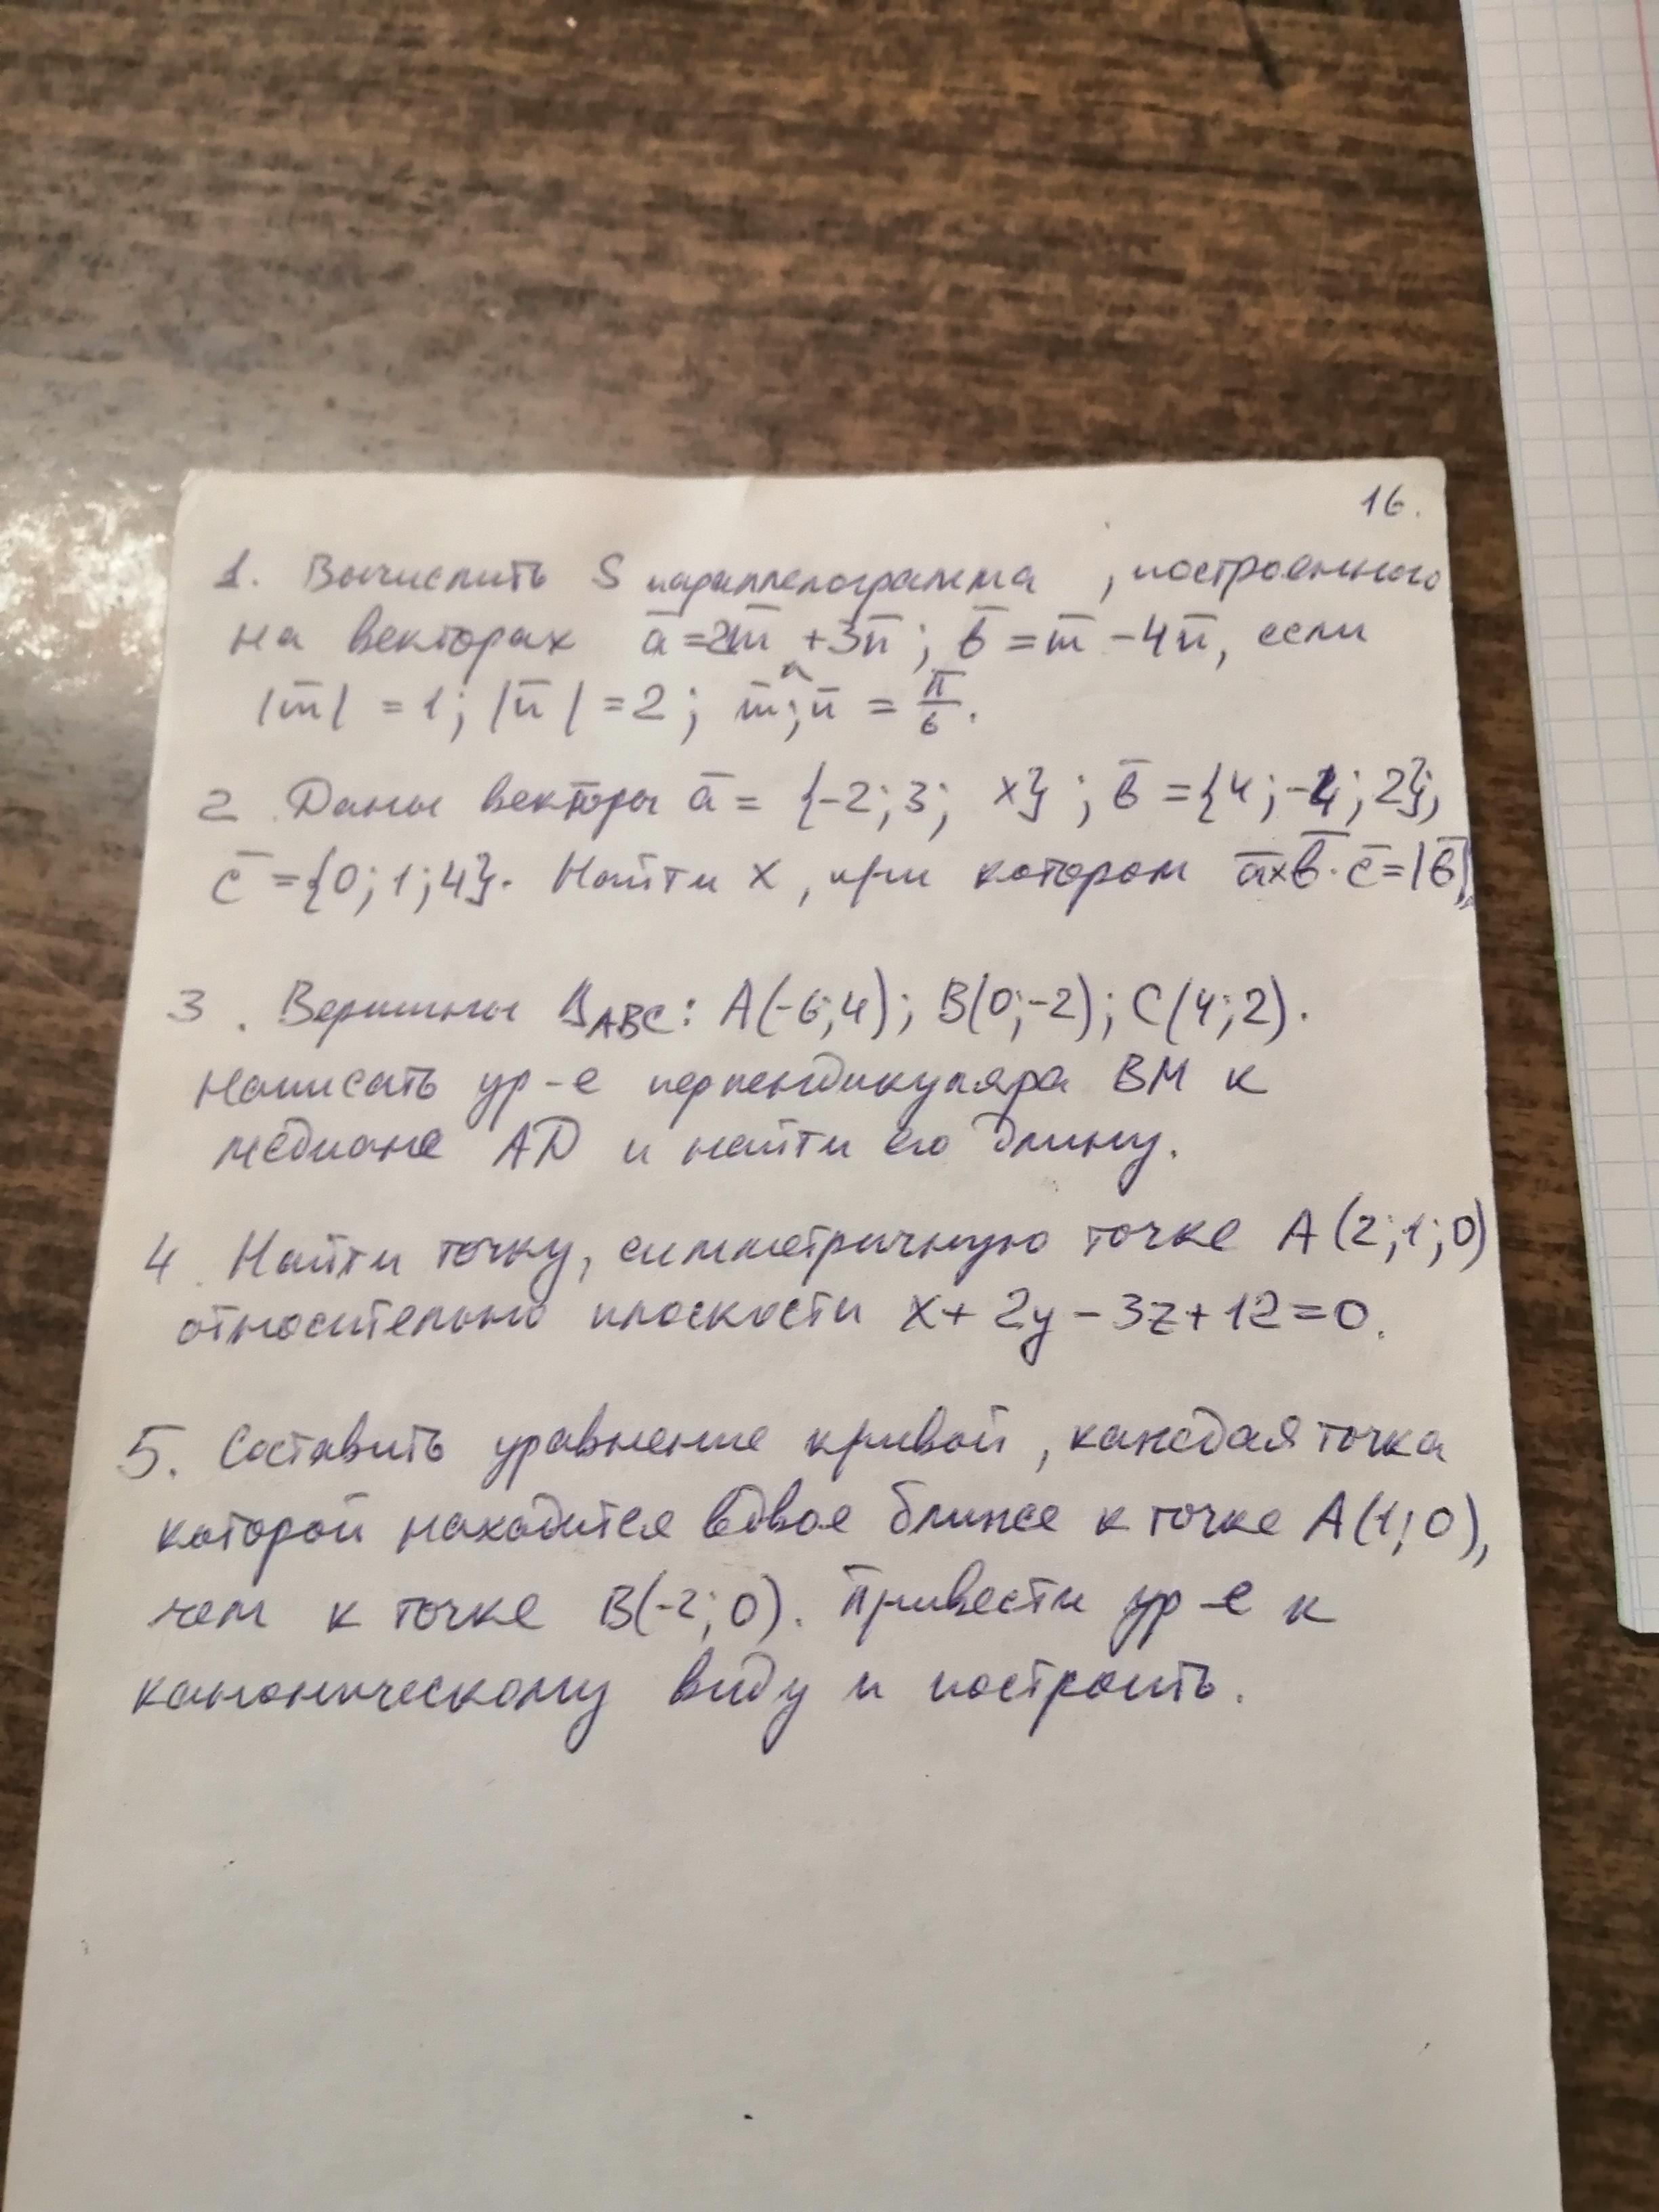 16.
1. Вычислить S параллелограмма, построенного
на векторах a̅ = 2m̅ + 3n̅; b̅ = m̅ - 4n̅, если
|m̅| = 1; |n̅| = 2; m̅;^n̅ = π/6.
2. Даны векторы a̅ = {-2; 3; x}; b̅ = {4; -4; 2};
c̅ = {0; 1; 4}. Найти x, при котором a̅×b̅·c̅=|b̅|.
3. Вершины Δ ABC: A(-6;4); B(0;-2); C(4;2).
Написать ур-е перпендикуляра BM к
медиане AD и найти его длину.
4. Найти точку, симметричную точке A(2;1;0)
относительно плоскости x + 2y - 3z + 12 = 0.
5. Составить уравнение кривой, каждая точка
которой находится вдвое ближе к точке A(1;0),
чем к точке B(-2;0). Привести ур-е к
каноническому виду и построить.